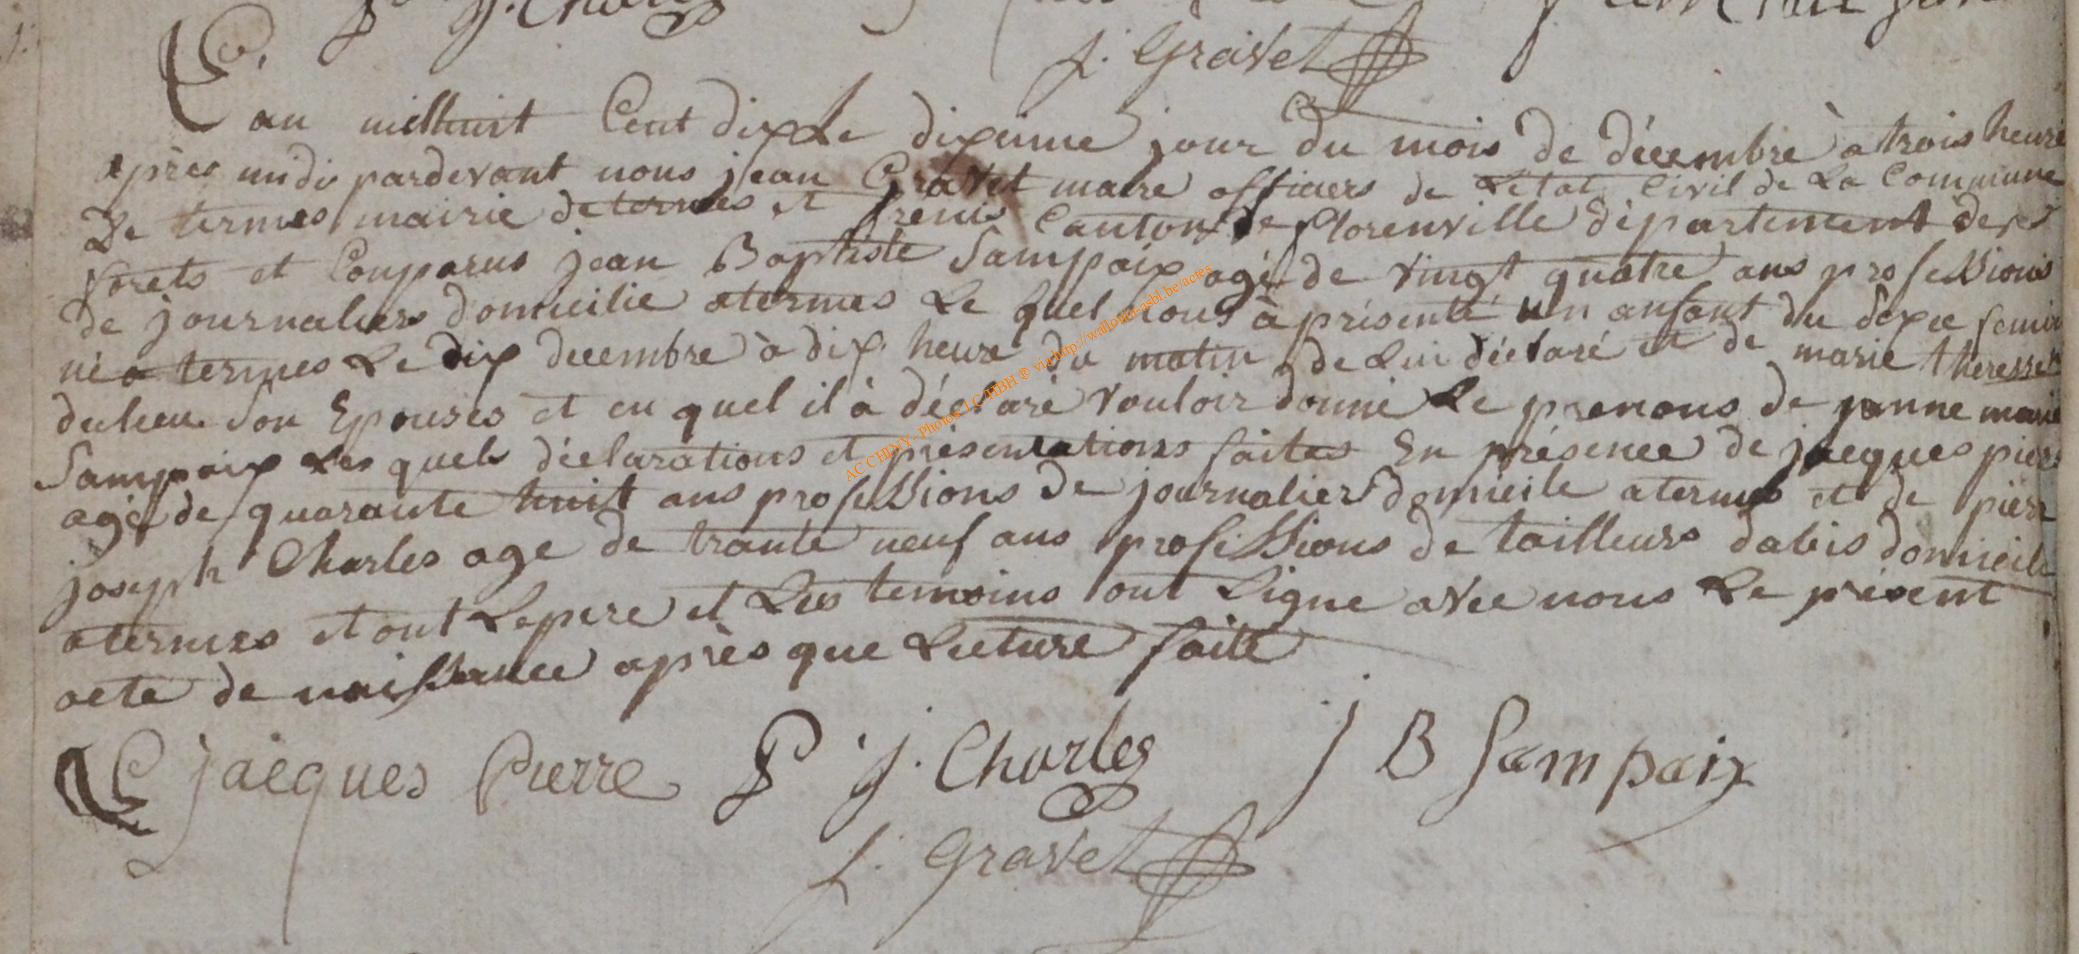 J. Charles
J. Gravet
L'an milhuit Cent dix Le dixieme jour du mois de décembre à trois heure
après midi pardevant nous jean Gravet maire officiers de L'etat Civil de La Commune
De termes mairie de termes et frenois Canton de florenville département des
forets et Comparus jean Baptiste Sampaix agé de vingt quatre ans professions
de journaliers domicilie atermes Le quel nous à présenté un anfant du Sexe femin
né a termes Le dix decembre à dix heure du matin de Lui déclaré et de marie theresse
duheu Son Epouses et au quel il à déclaré vouloir donné Le prenons de janne marie
Sampaix Les quels déclarations et présentations faites En présence de jacques pierre
agé de quarante huit ans professions de journalier domicile atermes et de pierre
joseph Charles age de trante neuf ans professions de tailleurs dabis domicile
atermes et ont Le pere et Les temoins ont Signe avec nous Le présent
acte de naissance après que Lecture faite
jacques Pierre P J. Charles J B Sampaix
J. Gravet
ACCHBNY - Photos LC-HBH ® via http://wallonia-asbl.be/actes